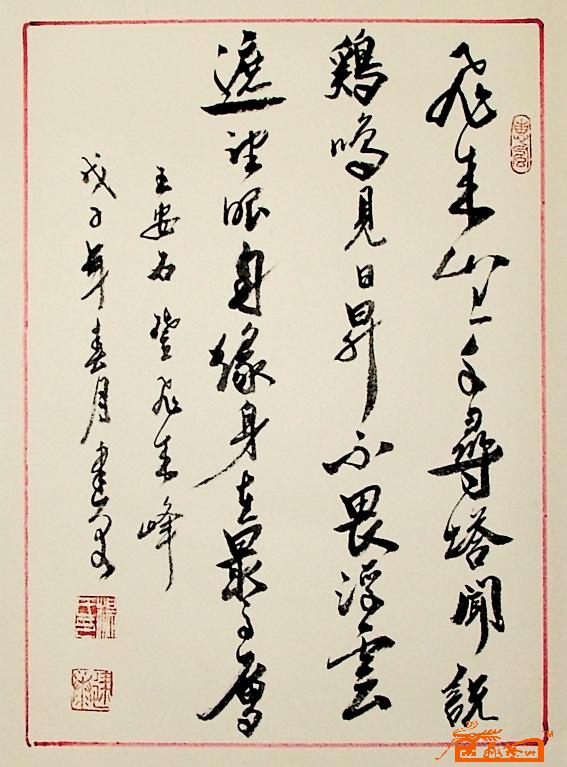 飛来山上千尋塔聞説
鷄鳴見日昇不畏浮雲
遮望眼自緣身在最高層
王安石登飛来峰
戊子年春月